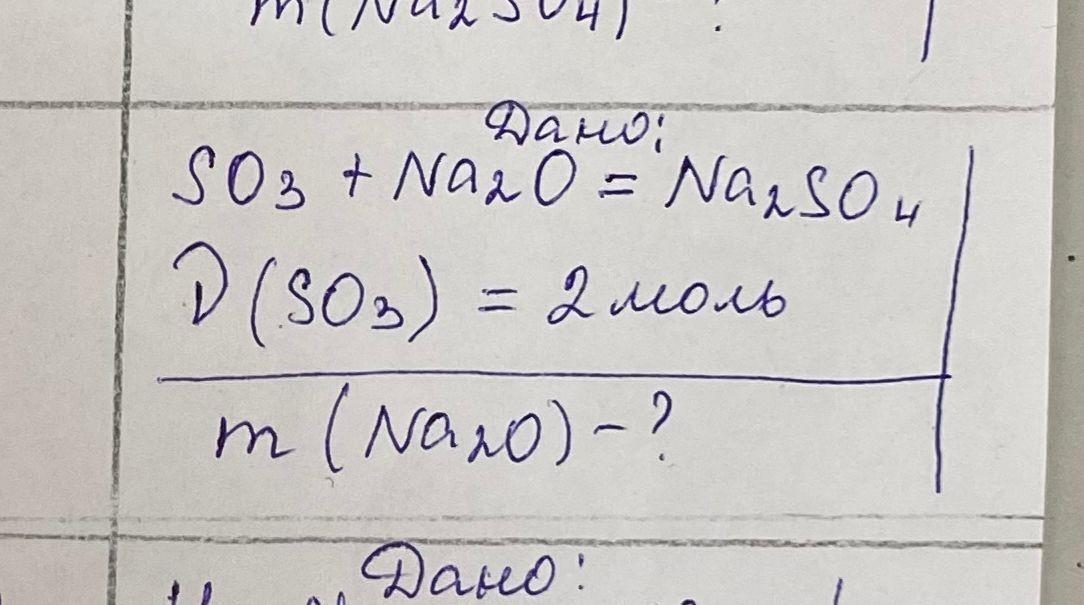 m(Na2SO4) ?
Дано:
SO3 + Na2O = Na2SO4
ν(SO3) = 2 моль
m(Na2O) - ?
Дано: